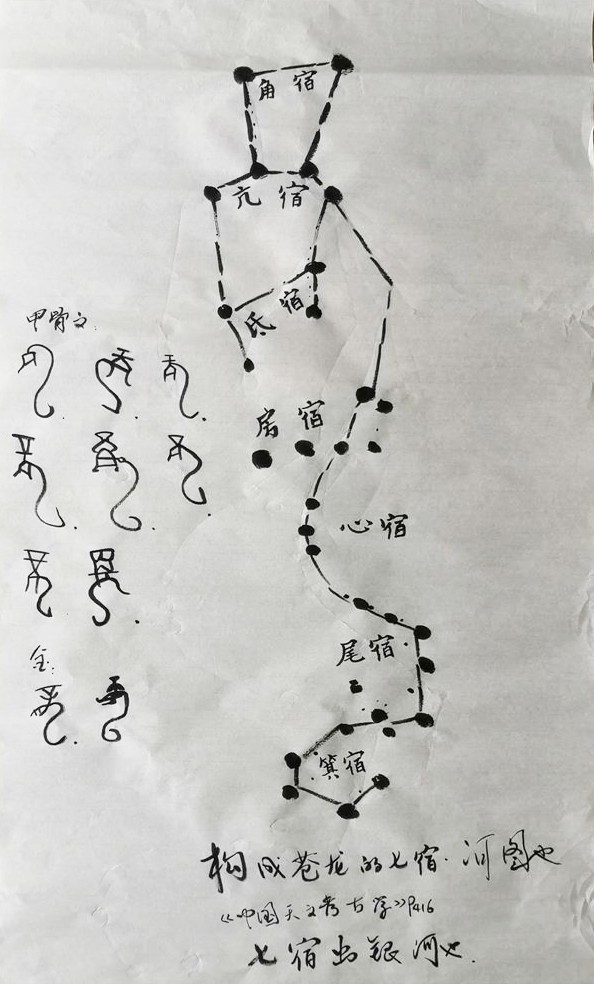 角宿
亢宿
氐宿
甲骨文:
房宿
心宿
尾宿
金:
箕宿
构成苍龙的七宿·河图也
《中国天文考古学》P416
七宿出银河也.